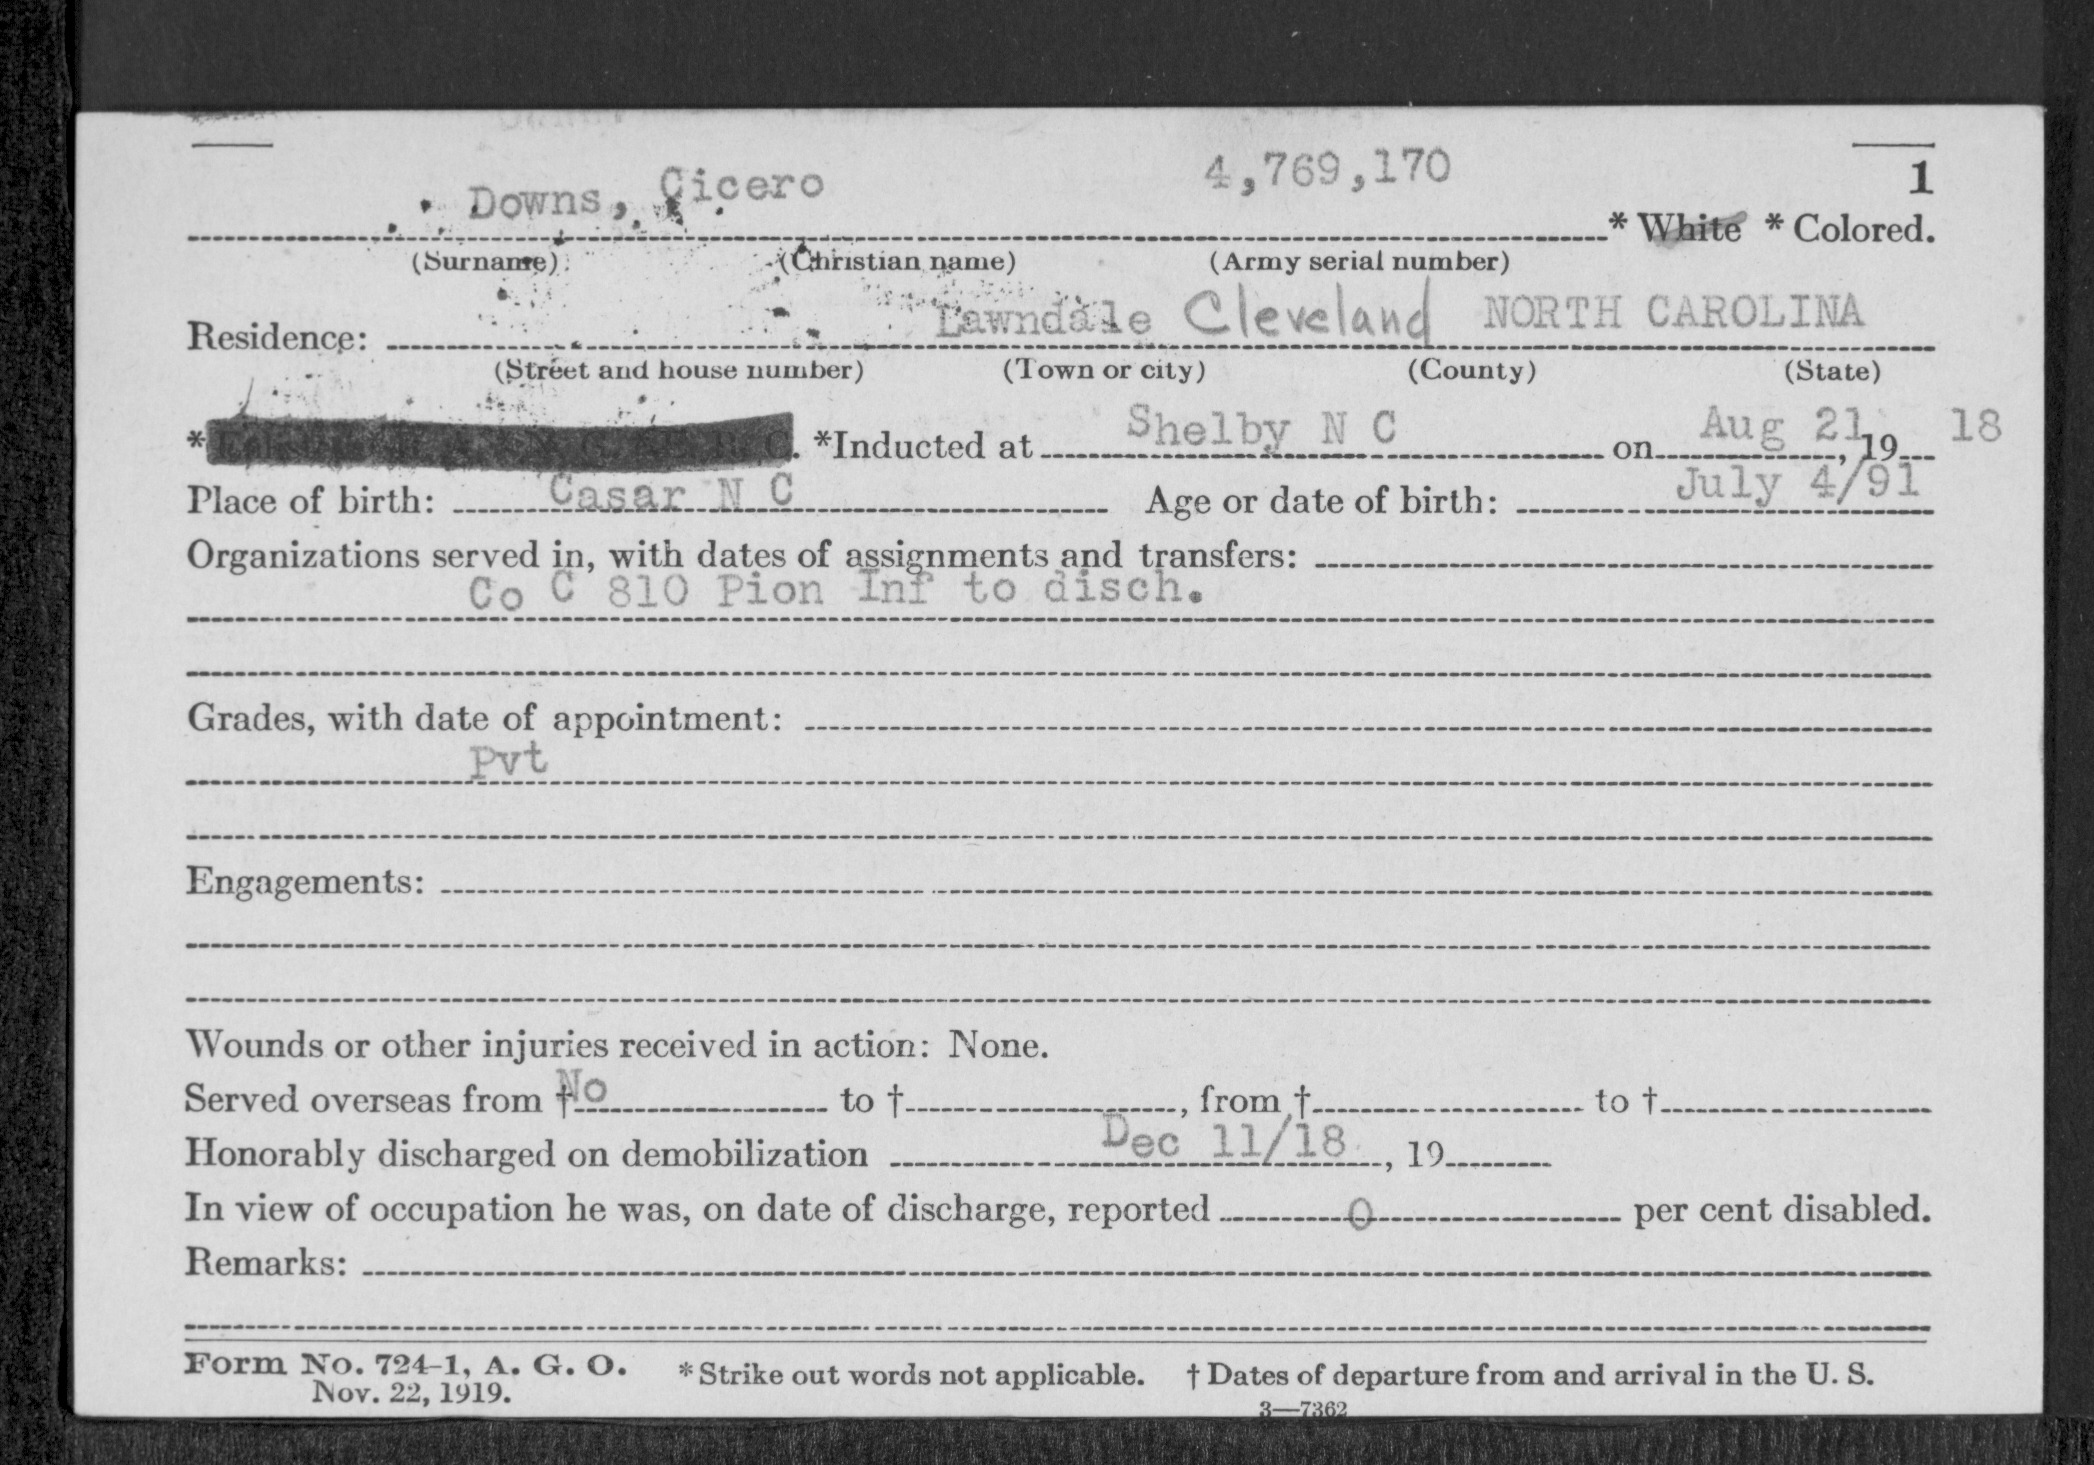 Downs, Cicero 4,769,170 1
* White * Colored.
(Surname) (Christian name) (Army serial number)
Residence: Lawndale Cleveland NORTH CAROLINA
(Street and house number) (Town or city) (County) (State)
* *Inducted at Shelby N C on Aug 21, 19 18
Place of birth: Casar N C Age or date of birth: July 4/91
Organizations served in, with dates of assignments and transfers:
Co C 810 Pion Inf to disch.
Grades, with date of appointment:
Pvt
Engagements:
Wounds or other injuries received in action: None.
Served overseas from † No to †, from † to †
Honorably discharged on demobilization Dec 11/18, 19
In view of occupation he was, on date of discharge, reported 0 per cent disabled.
Remarks:
Form No. 724-1, A. G. O. * Strike out words not applicable. † Dates of departure from and arrival in the U. S.
Nov. 22, 1919.
3—7362